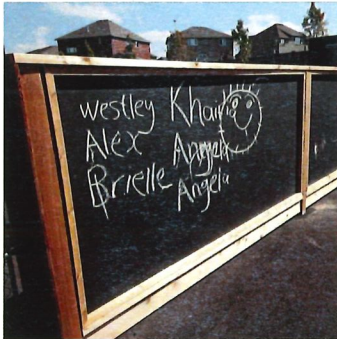 Westley Khairi
Alex Angela
Brielle Angela